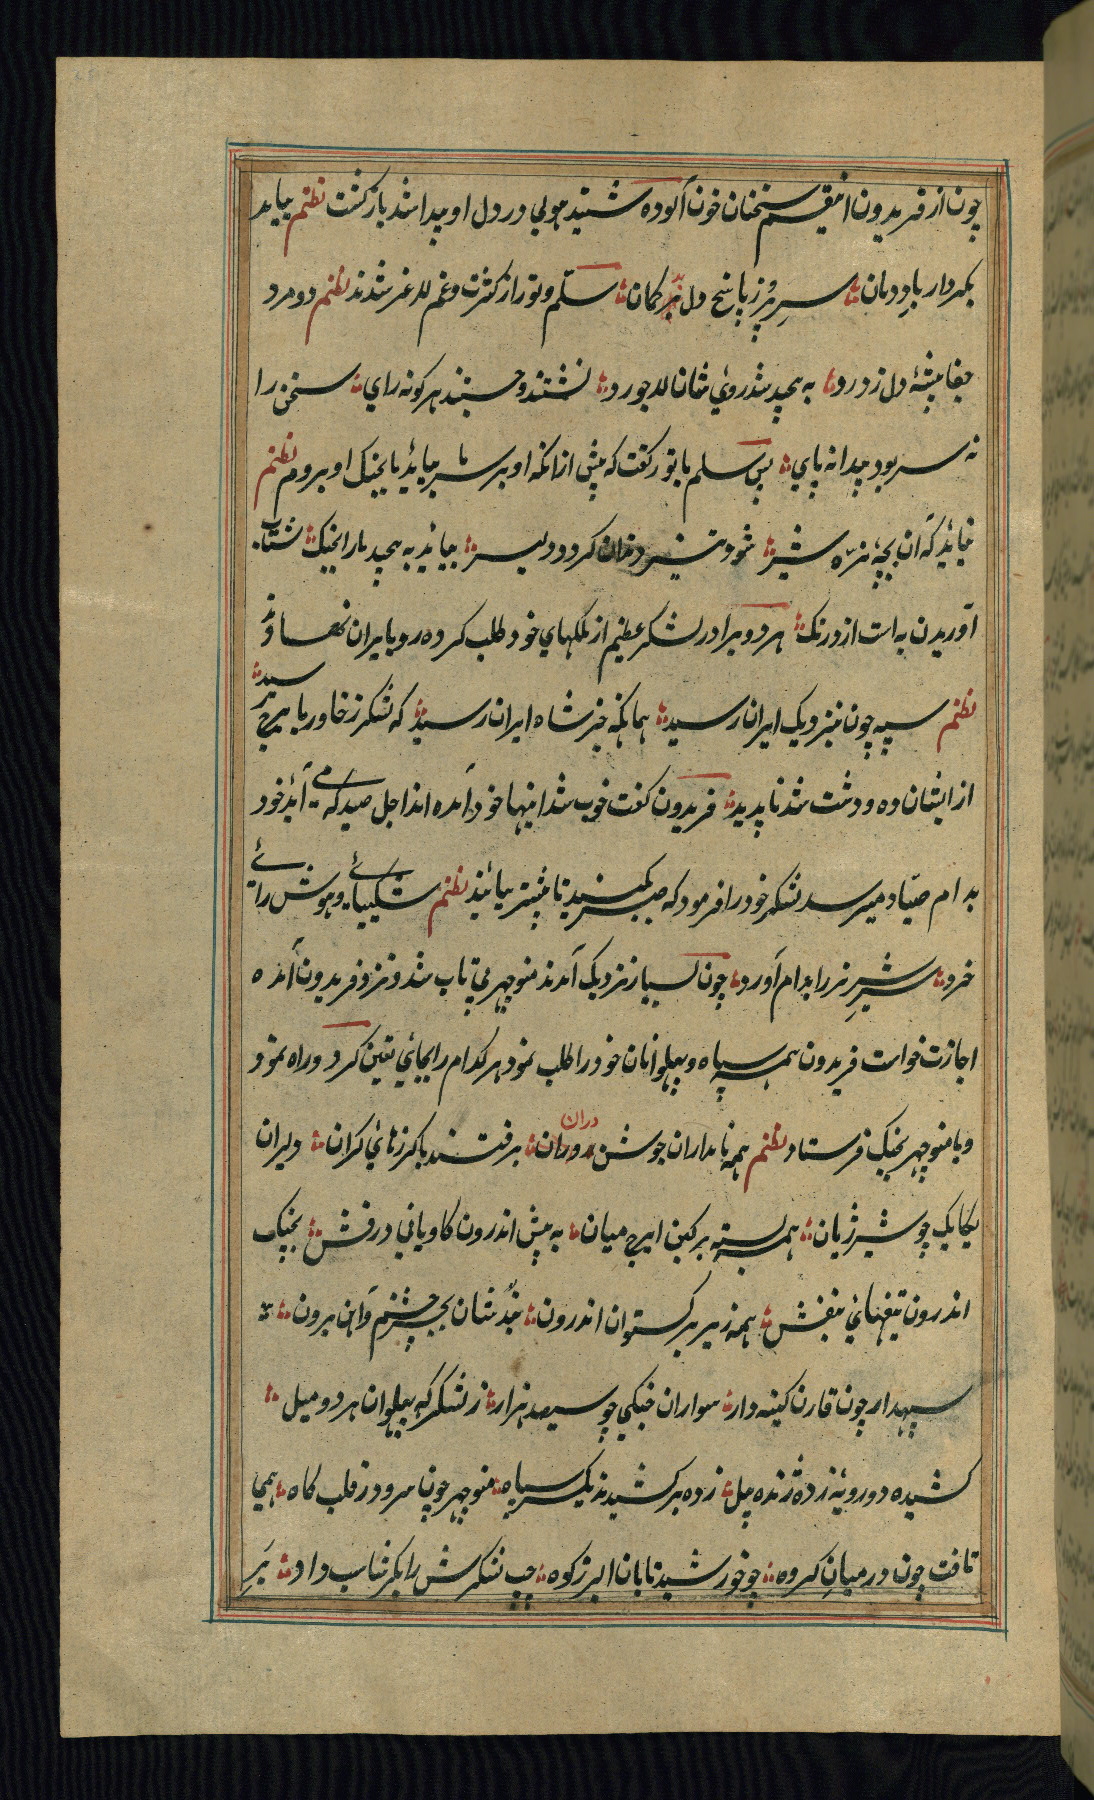 چون از فریدون اینقسم سخنان خون آلوده شنید هولی در دل او پیدا شد باز کشت نظم بیامد
بکردار باد دمان ؞ سر پر ز پاسخ دل پر کمان ؞ سلم و تور از کثرت و غم لاغر شدند نظم دو مرد
جفا پیشهٔ دل ز درد ؞ به پیچید شد روی شان لاجورد ؞ نشتند و جستند هر کونه رای ؞ سخن را
نه سر بود پیدا نه پای ؞ پس سلم با تور کفت که پیش ازانکه او بر سر ما بیاید ما بجنک او برویم نظم
نباید که آن بچهٔ نرّه شیر ؞ شود تیز دندان کردد دلیر ؞ بیاید به پیچد مارا بجنک ؞ شتاب
آوریدن به است از درنک ؞ هر دو برادر لشکر عظیم از ملکهای خود طلب کرده رو بایران نهادند
نظم سپه چون بنزدیک ایران رسید ؞ همانکه خبر شاه ایران رسید ؞ که لشکر ز خاور بایرج رسید ؞
از ایشان ده و دشت شد ناپدید ؞ فریدون کفت خوب شد اینها خود آمده اند اجل صید که می آید خود
بدام صیّاد میرسد لشکر خود را فرمود که صبر کنید تا پیشتر بیایند نظم شکیبائی و هوش رائی
خرد ؞ شیرِ نر را بدام آورد ؞ چون بسیار نزدیک آمدند منوچهر بی تاب شد و نزد فریدون آمده
اجازت خواست فریدون همه سپاه و پهلوانان خود را طلب نمود هر کدام را بجائی تعین کرد و راه نمود
و با منوچهر بجنک فرستاد نظم همه نامداران جوشن وران ؞ برفتند با کرزهای کران ؞ دلیران
یکایک چو شیر ژیان ؞ همه بسته بر کین ایرج میان ؞ به پیش اندرون کاویانی درفش ؞ بچنک
اندرون تیغهای بنفش ؞ همه زیر برکستوان اندرون ؞ نبد شان بجز چشم و آهن برون ؞
سپهدار چون قارن کینه دار ؞ سواران جنکی چو سیصد هزار ؞ ز لشکر که پهلوان هر دو میل ؞
کشیده دو رویه زده ژنده پیل ؞ زده بر کشیدند یکسر سپاه ؞ منوچهر چون سرو در قلب کاه ؞ همی
تافت چون در میان کروه ؞ چو خورشید تابان البرز کوه ؞ چپ لشکرش را بکرشاسب داد ؞ بَرِ